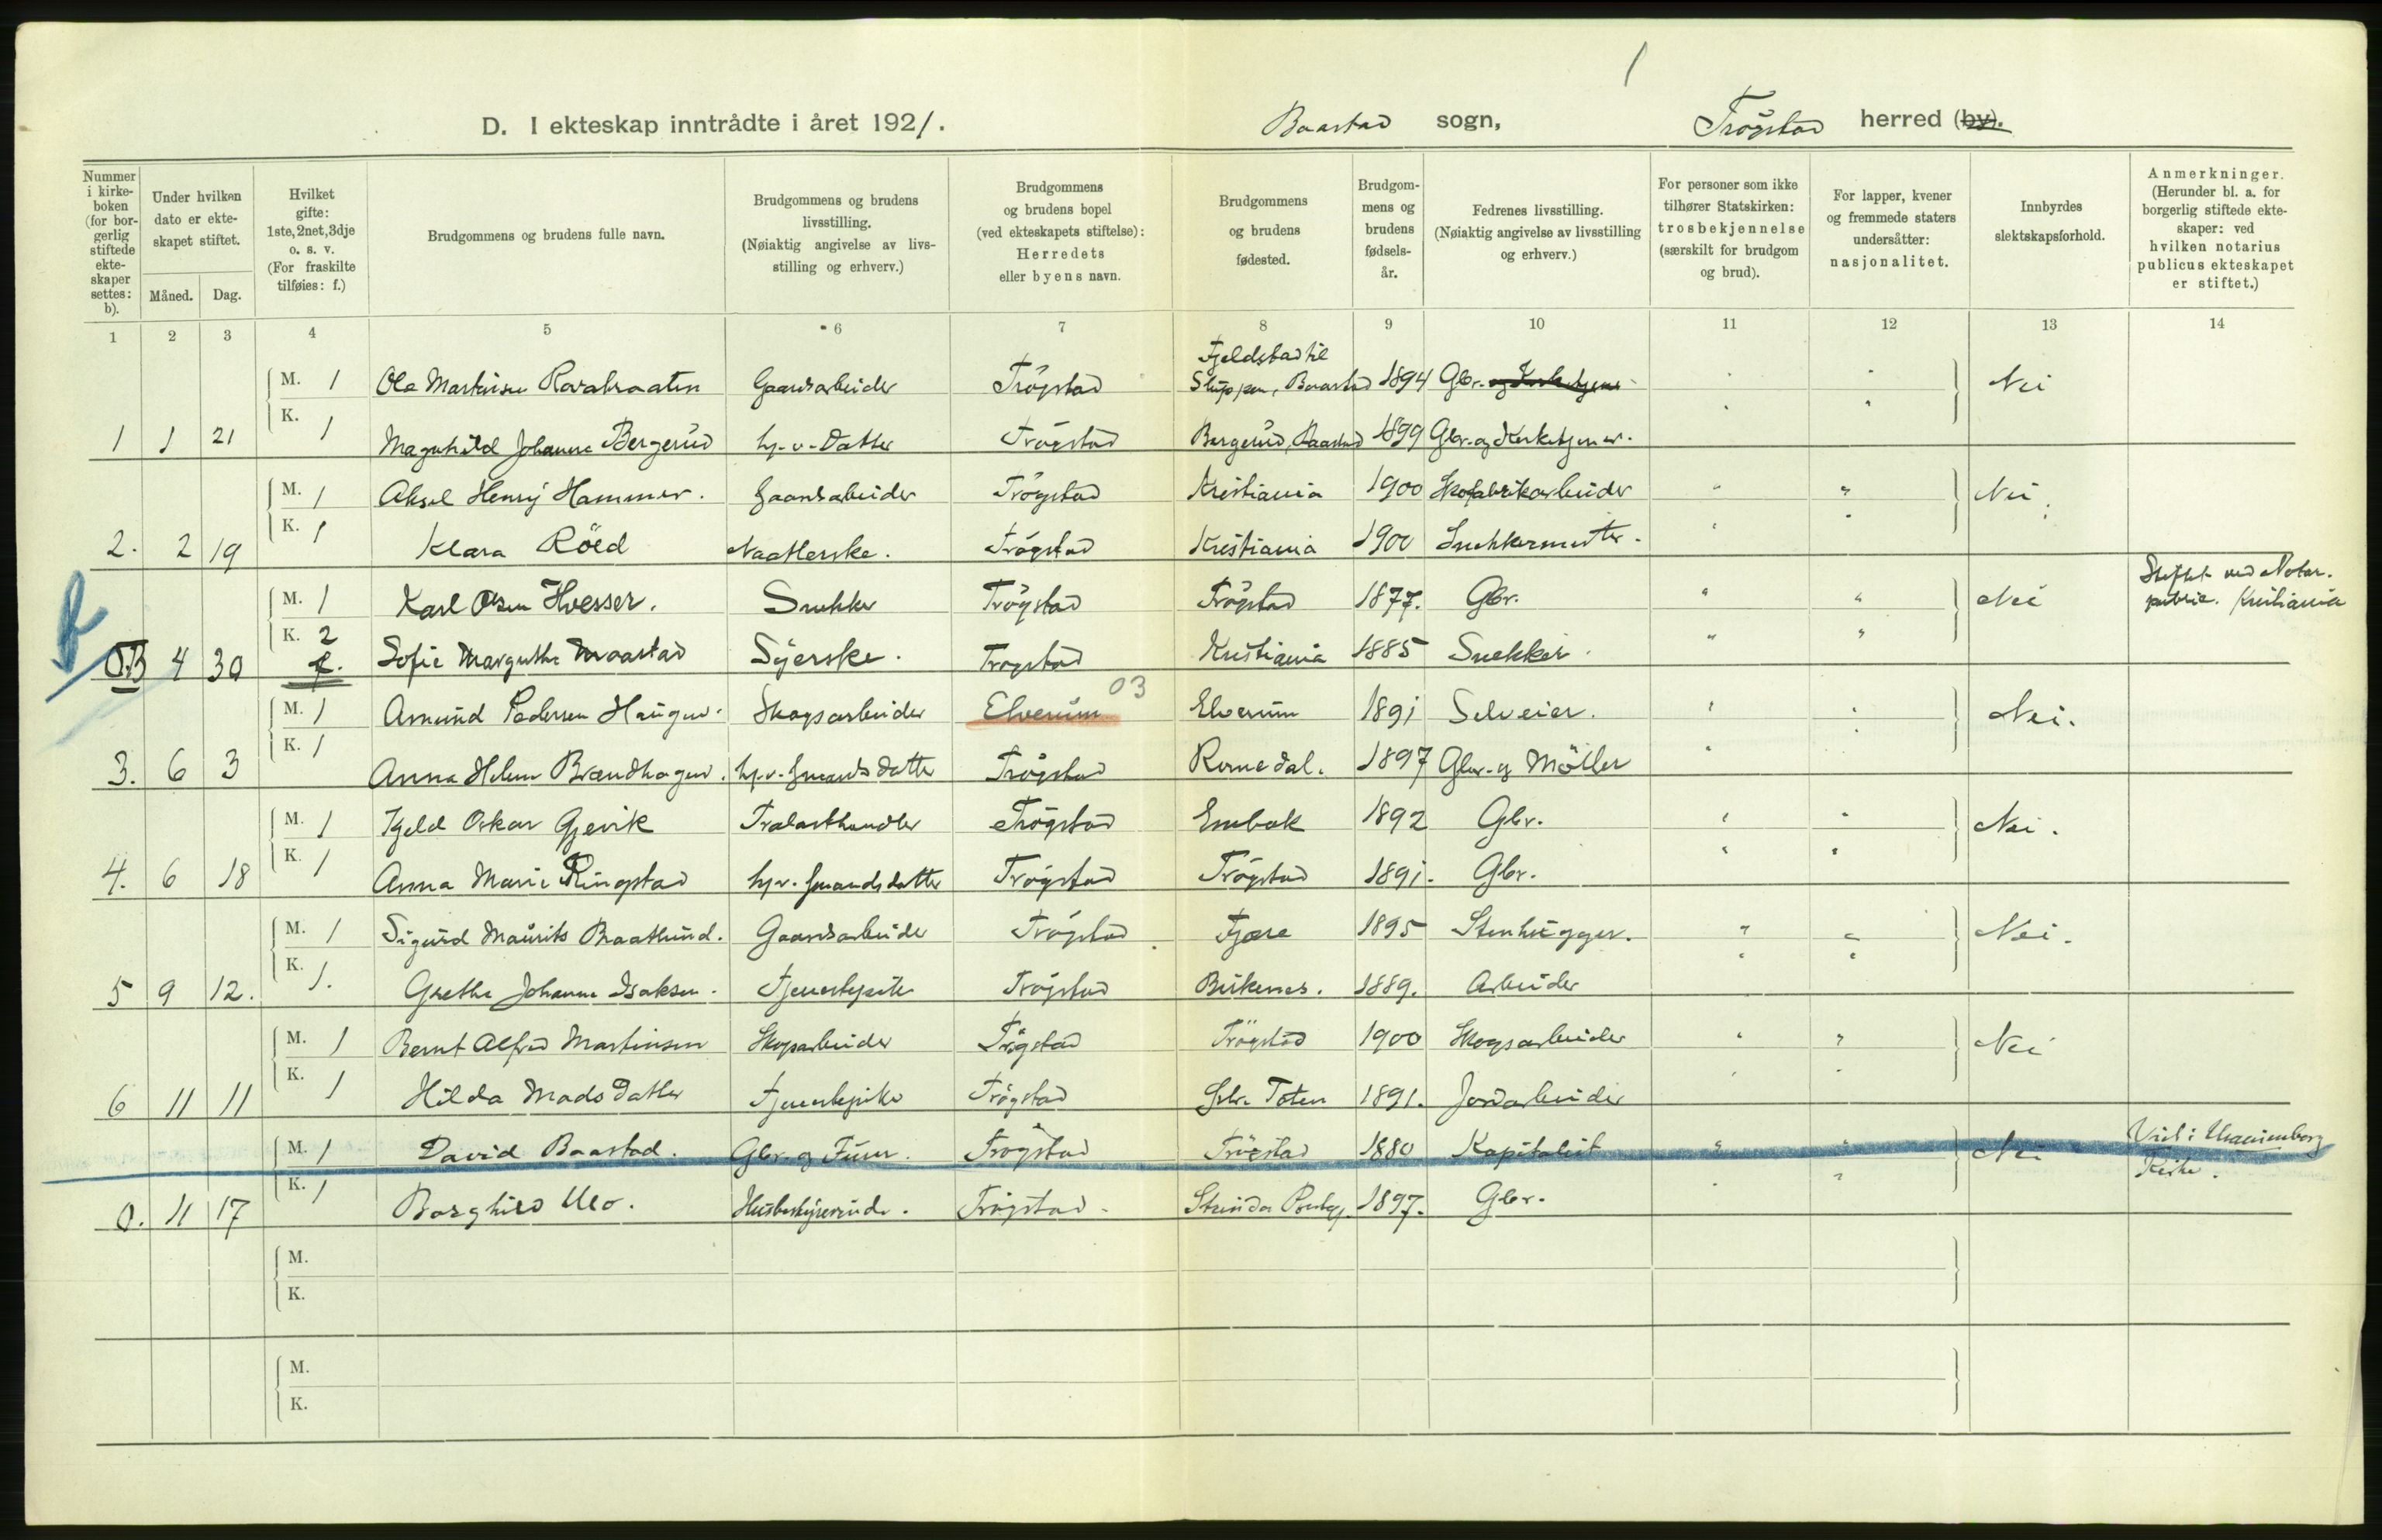 1
D. I ekteskap inntrådte i året 1921. Baastad sogn, Trögstad herred (by).
Nummer i kirke- boken (for bor- gerlig stiftede ekte- skaper settes: b).
Under hvilken dato er ekte- skapet stiftet.
Måned. Dag.
Hvilket gifte: 1ste, 2net, 3dje o. s. v. (For fraskilte tilføies: f.)
Brudgommens og brudens fulle navn.
Brudgommens og brudens livsstilling. (Nøiaktig angivelse av livs- stilling og erhverv.)
Brudgommens og brudens bopel (ved ekteskapets stiftelse): Herredets eller byens navn.
Brudgommens og brudens fødested.
Brudgom- mens og brudens fødsels- år.
Fedrenes livsstilling. (Nøiaktig angivelse av livsstilling og erhverv.)
For personer som ikke tilhører Statskirken: trosbekjennelse (særskilt for brudgom og brud).
For lapper, kvener og fremmede staters undersåtter: nasjonalitet.
Innbyrdes slektskapsforhold.
Anmerkninger. (Herunder bl. a. for borgerlig stiftede ekte- skaper: ved hvilken notarius publicus ekteskapet er stiftet.)
1 2 3 4 5 6 7 8 9 10 11 12 13 14
M. 1 Ola Martinsen Gaardsarbeider Trögstad Baastad 1894 Gbr. " " Nei
1 1 21 K. 1 Magnhild Johanne Bergerud hj. v. Datter Trögstad Bergerud, Baastad 1899 Gbr. og Kirketjener. " "
M. 1 Aksel Henry Hammer. Gaardsarbeider Trögstad Kristiania 1900 Skofabrikarbeider " " Nei.
2. 2 19 K. 1 Klara Röed Trögstad Kristiania 1900 Snekkermester. " "
M. 1 Karl Olsen Hvesser. Snekker Trögstad Trögstad 1877. Gbr. " " Nei Stiftet ved Notar. public. Kristiania
O.B 4 30 K. 2 f. Sofie Margrethe Syerske. Trögstad Kristiania 1885 Snekker. " "
M. 1 Amund Pedersen Haugen. Skogsarbeider Elverum 03 Elverum 1891 Selveier. " " Nei.
3. 6 3 K. 1 Anna Helene Brændhagen. hj. v. Gmands datter Trögstad Romedal. 1897 Gbr. og Möller "
M. 1 Kjeld Oskar Gjevik Trælasthandler Trögstad Enebak 1892 Gbr. " " Nei.
4. 6 18 K. 1 Anna Marie Ringstad hj. v. Gmands datter Trögstad Trögstad 1891. Gbr. " "
M. 1 Sigurd Maurits Braatlund. Gaardsarbeider Trögstad Fjære 1895 Stenhugger. " " Nei.
5 9 12. K. 1. Grethe Johanne Isaksen. Tjenestepike Trögstad Birkenes. 1889. Arbeider " "
M. 1 Bernt Alfred Martinsen Skogsarbeider Trögstad Trögstad 1900 Skogsarbeider " " Nei
6 11 11 K. 1 Hilda Mads Datter Tjenestepike Trögstad Toten 1891. Jordarbeider " "
M. 1 David Baastad. Gbr. og Trögstad Trögstad 1880 Kapitalist " " Nei Viet i Uranienborg Kirke.
0. 11 17 K. 1 Borghild Moo. Husbestyrerinde. Trögstad. Strinda 1897. Gbr. " "
M.
K.
M.
K.